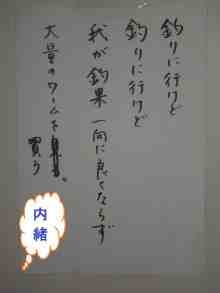 釣りに行けど
釣りに行けど
我が釣果一向に良くならず
大量のワームを
買う。
内緒